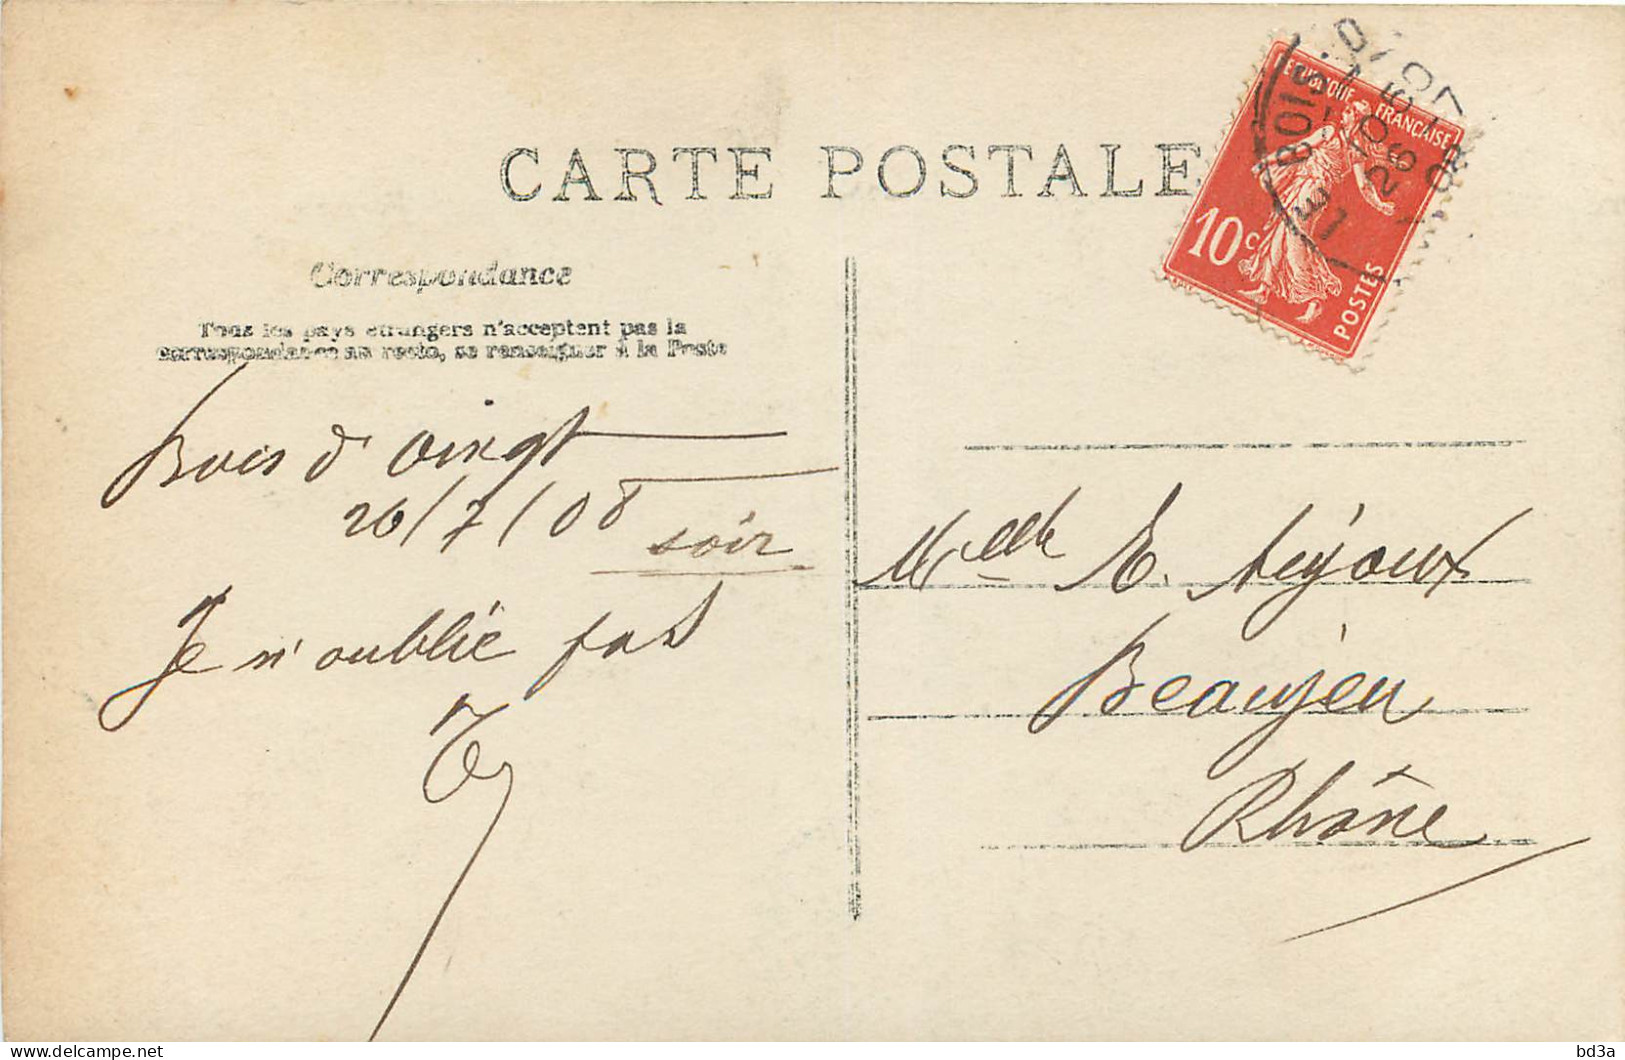 CARTE POSTALE
Correspondance
Tous les pays étrangers n'acceptent pas la
correspondance au recto, se renseigner à la Poste
Bois d'oingt
26/7/08
soir
Je n'oublie pas
RÉPUBLIQUE FRANÇAISE
10c
POSTES
LE BOIS-D'OINGT
26
08
Melle E.
Beaujeu
Rhône
bd3a